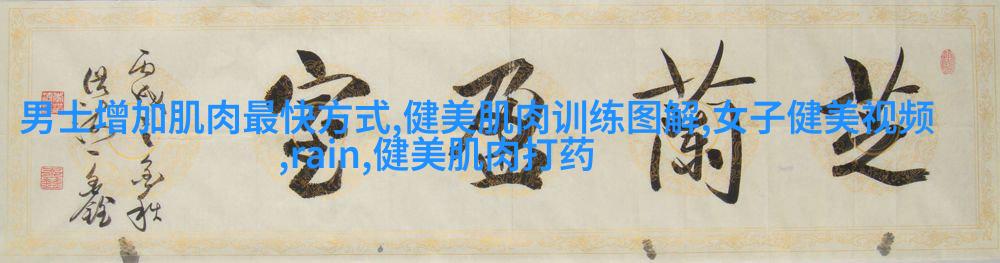 男士增加肌肉最快方式,健美肌肉训练图解,女子健美视频
,rain,健美肌肉打药
芝蘭盈室
丙戌金秋